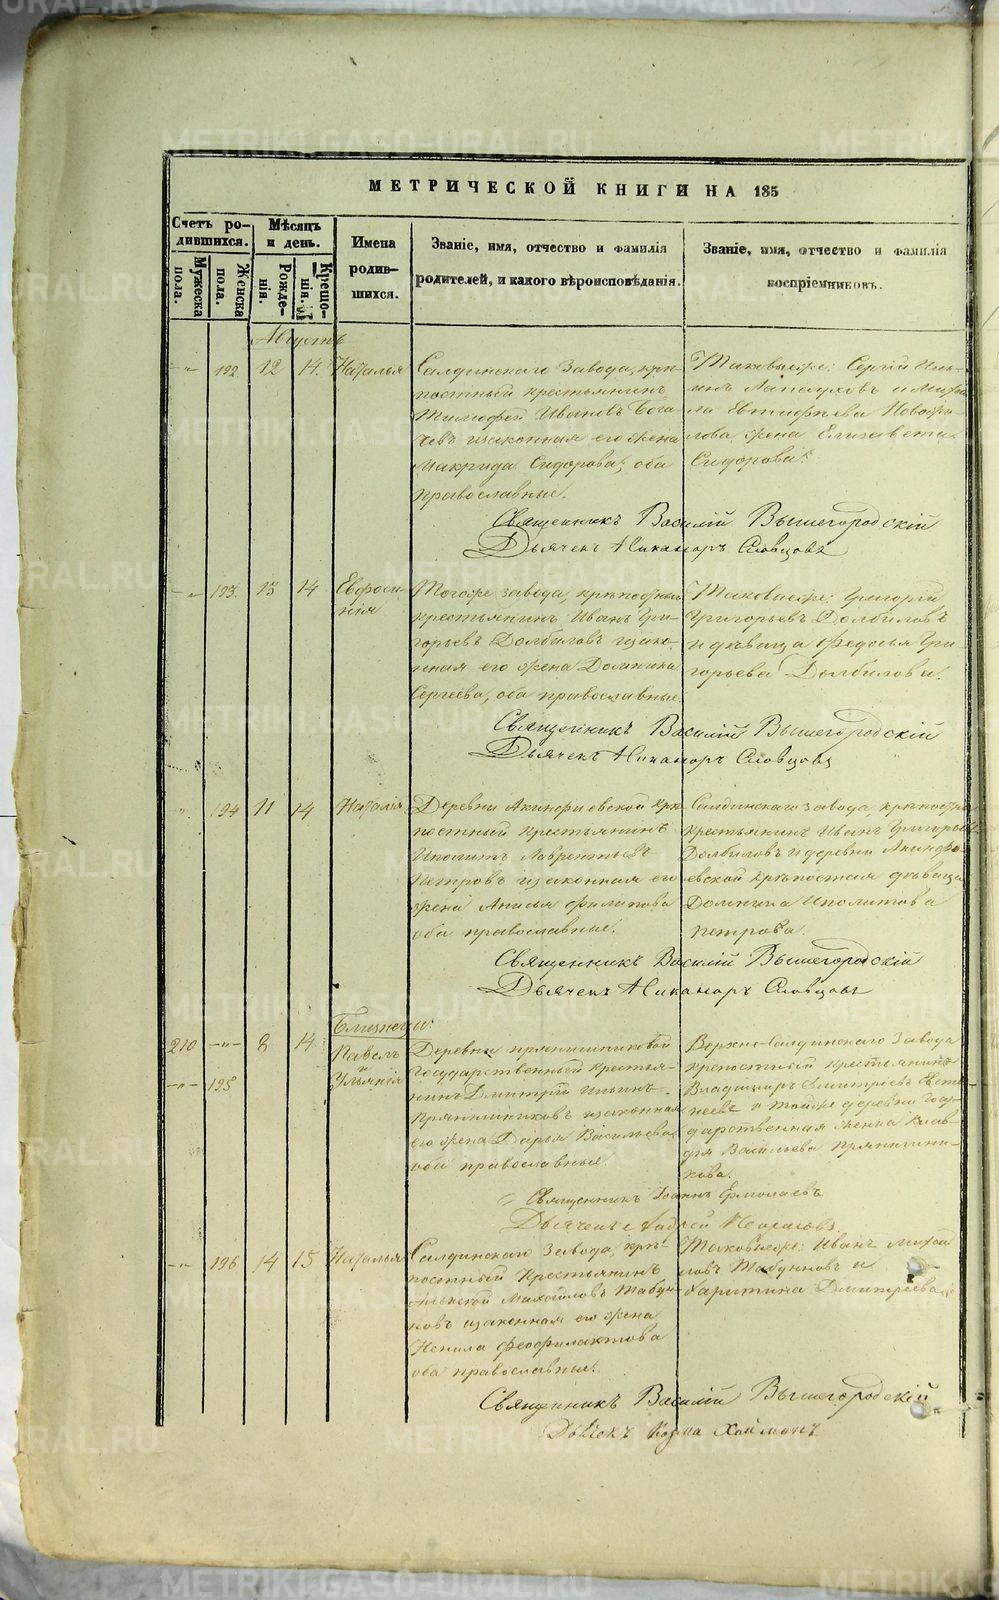 МЕТРИЧЕСКОЙ КНИГИ НА 185
Счетъ ро-
дившихся.
Мужеска
пола.
Женска
пола.
Мѣсяцъ
и день.
Рожде-
нія.
Крещо-
нія.
Имена
родив-
шихся.
Званіе, имя, отчество и фамилія
родителей, и какого вѣроисповѣданія.
Званіе, имя, отчество и фамилія
воспріемниковъ.
Августъ
192. 12 14. Наталья
Салдинскаго Завода, крѣ-
постный крестьянинъ
Тимофей Ивановъ Бога-
чевъ и законная его жена
Макрида Сидорова, оба
православные.
Таковыеже: Сергій Иль-
инъ Лапауховъ и
Евтифѣева
жена Елизавета
Сидорова.
Священникъ Василій Вышегородскій
Дьячекъ Никаноръ Словцовъ
193. 13 14 Евфроси-
нія
Тогоже завода, крѣпостный
крестьянинъ Иванъ Гри-
горьевъ Долбиловъ и зако-
нная его жена Домника
Сергеева, оба православные
Таковыеже: Григорій
Григорьевъ Долбиловъ
и дѣвица Федосья Гри-
горьева Долбилова.
Священникъ Василій Вышегородскій
Дьячекъ Никаноръ Словцовъ
194 11 14 Наталія
Деревни Акинфіевской крѣ-
постный крестьянинъ
Иполитъ Лаврентьевъ
Петровъ и законная его
жена Анисья Филипова
оба православные.
Салдинскаго завода, крѣпостный
крестьянинъ Иванъ Григорьевъ
Долбиловъ и деревни Акинфі-
евской крѣпостная дѣвица
Домника Иполитова
Петрова.
Священникъ Василій Вышегородскій
Дьячекъ Никаноръ Словцовъ
Близнецы:
210 8 14 Павелъ
и
195 Ульянія
Деревни Прянишниковой
Государственный крестья-
нинъ Дмитрій Ильинъ
Прянишниковъ и законная
его жена Дарья Васильева
оба православные.
Верхно-Салдинскаго Завода
крепостный крестьянинъ
Владимиръ Дмитріевъ
и тойже деревни Госу-
дарственная женка Клав-
дія Васильева Прянишни-
кова.
Священникъ Іоаннъ Ермолаевъ
Дьячекъ Андрей
196 14 15 Наталья
Салдинскаго Завода, крѣ-
постный Крестьянинъ
Алексѣй Михайловъ Табун-
ковъ и законная его жена
Ненила Феофилактова
оба православные.
Таковыеже: Иванъ Михай
ловъ Табунковъ и
Харитина Дмитріева
Священникъ Василій Вышегородскій
Дьячекъ Козма Хойманъ
METRIKI.GASO-URAL.RU